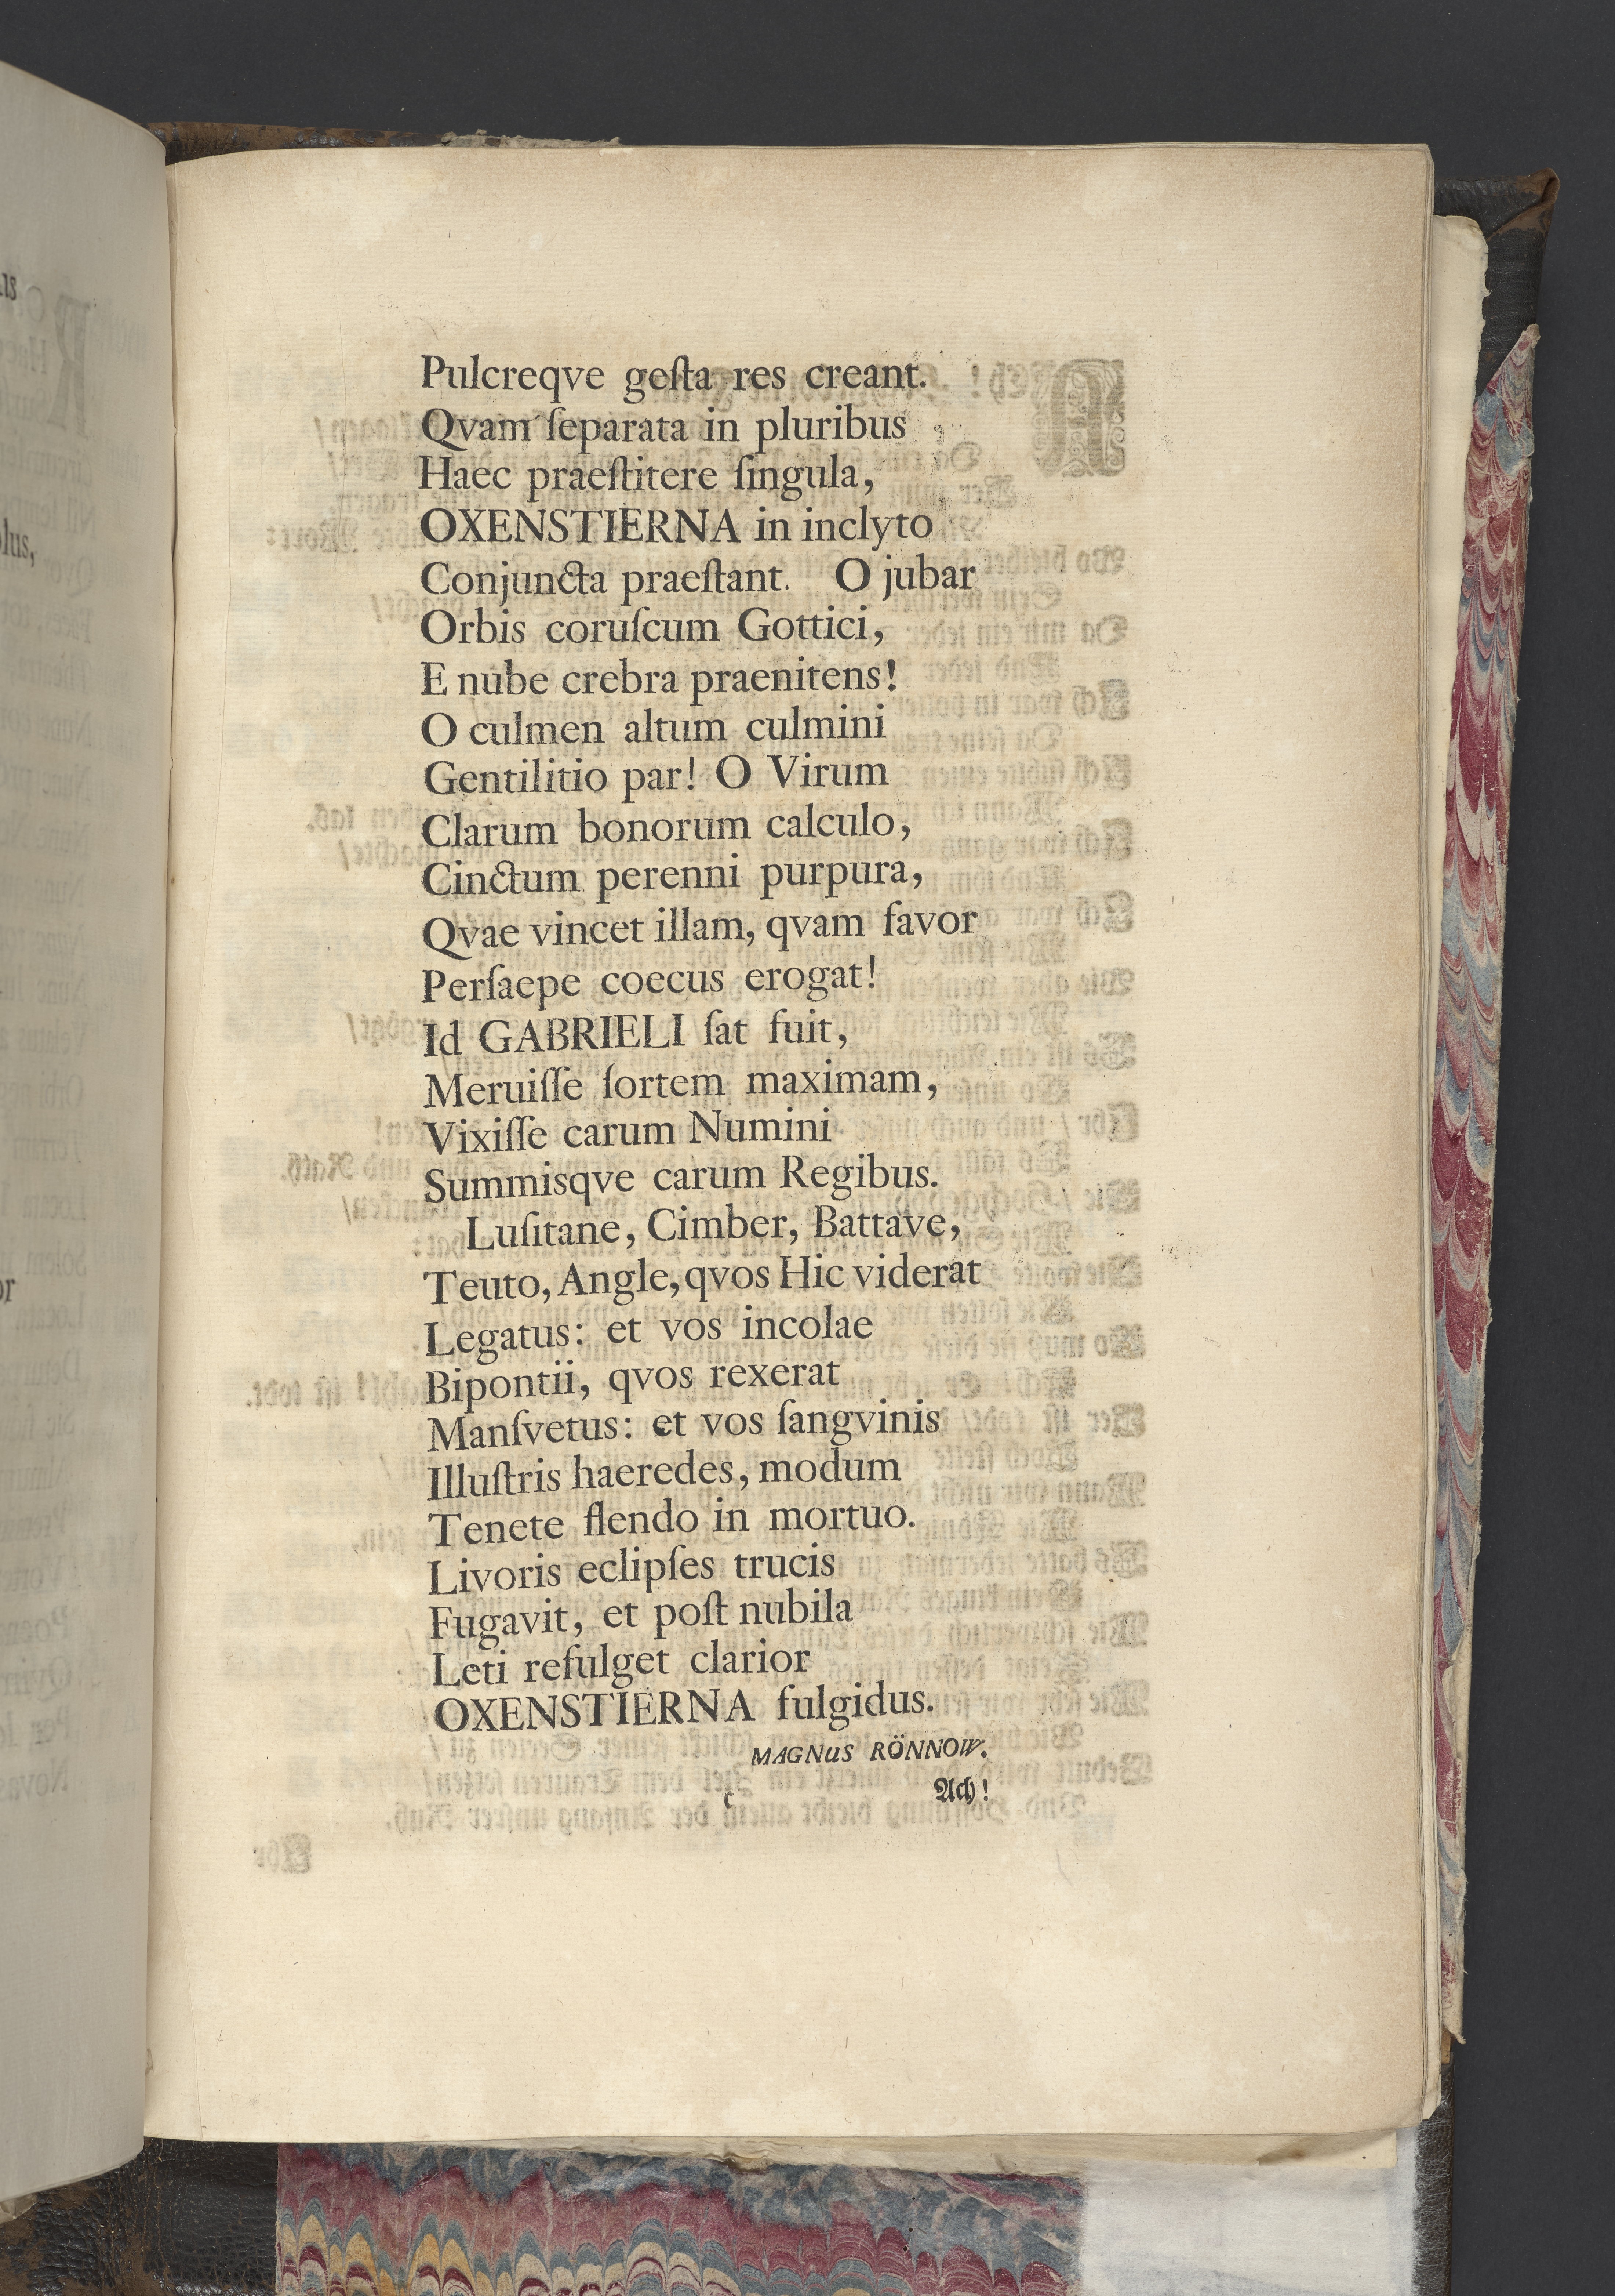 Pulcreqve geſta res creant.
Qvam ſeparata in pluribus
Haec praeſtitere ſingula,
OXENSTIERNA in inclyto
Conjuncta praeſtant. O jubar
Orbis coruſcum Gottici,
E nube crebra praenitens!
O culmen altum culmini
Gentilitio par! O Virum
Clarum bonorum calculo,
Cinctum perenni purpura,
Qvae vincet illam, qvam favor
Perſaepe coecus erogat!
Id GABRIELI ſat fuit,
Meruiſſe ſortem maximam,
Vixiſſe carum Numini
Summisqve carum Regibus.
Luſitane, Cimber, Battave,
Teuto, Angle, qvos Hic viderat
Legatus: et vos incolae
Bipontii, qvos rexerat
Manſvetus: et vos ſangvinis
Illuſtris haeredes, modum
Tenete flendo in mortuo.
Livoris eclipſes trucis
Fugavit, et poſt nubila
Leti refulget clarior
OXENSTIERNA fulgidus.
MAGNUS RÖNNOW.
Ach!